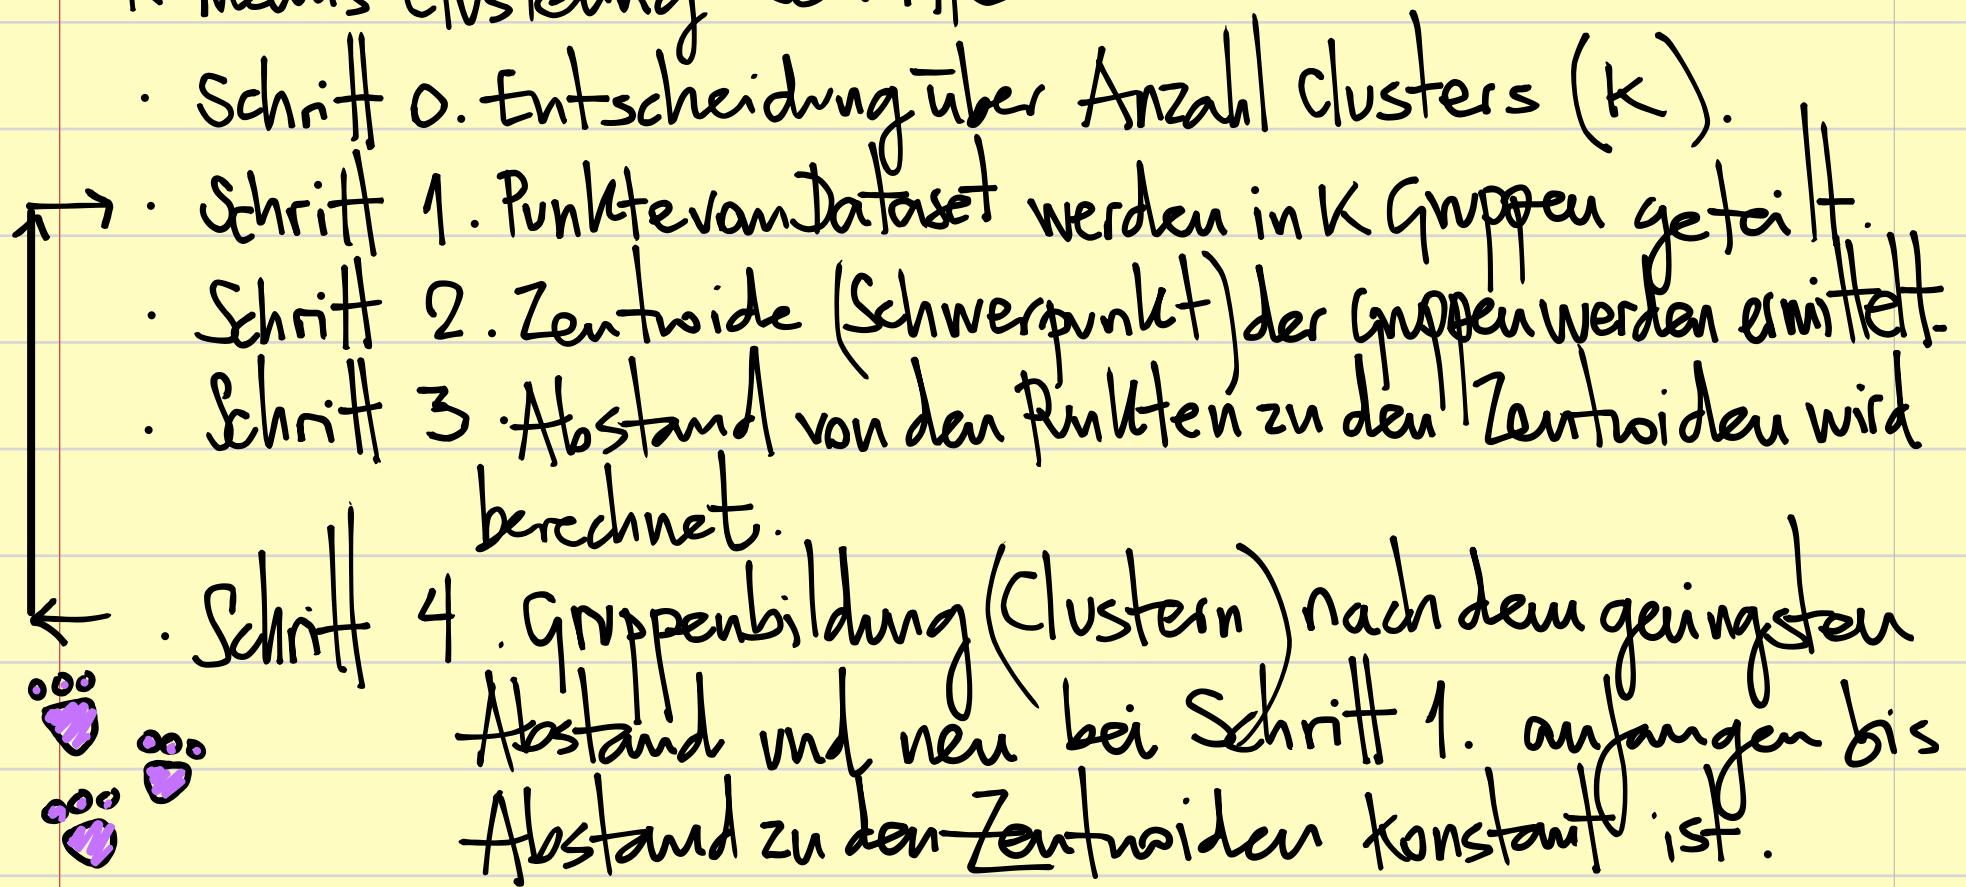 K Means Clustering
· Schritt 0. Entscheidung über Anzahl Clusters (K).
· Schritt 1. Punkte vom Dataset werden in K Gruppen geteilt.
· Schritt 2. Zentroide (Schwerpunkt) der Gruppen werden ermittelt.
· Schritt 3. Abstand von den Punkten zu den Zentroiden wird
berechnet.
· Schritt 4. Gruppenbildung (Clustern) nach dem geringsten
Abstand und neu bei Schritt 1. anfangen bis
Abstand zu den Zentroiden konstant ist.